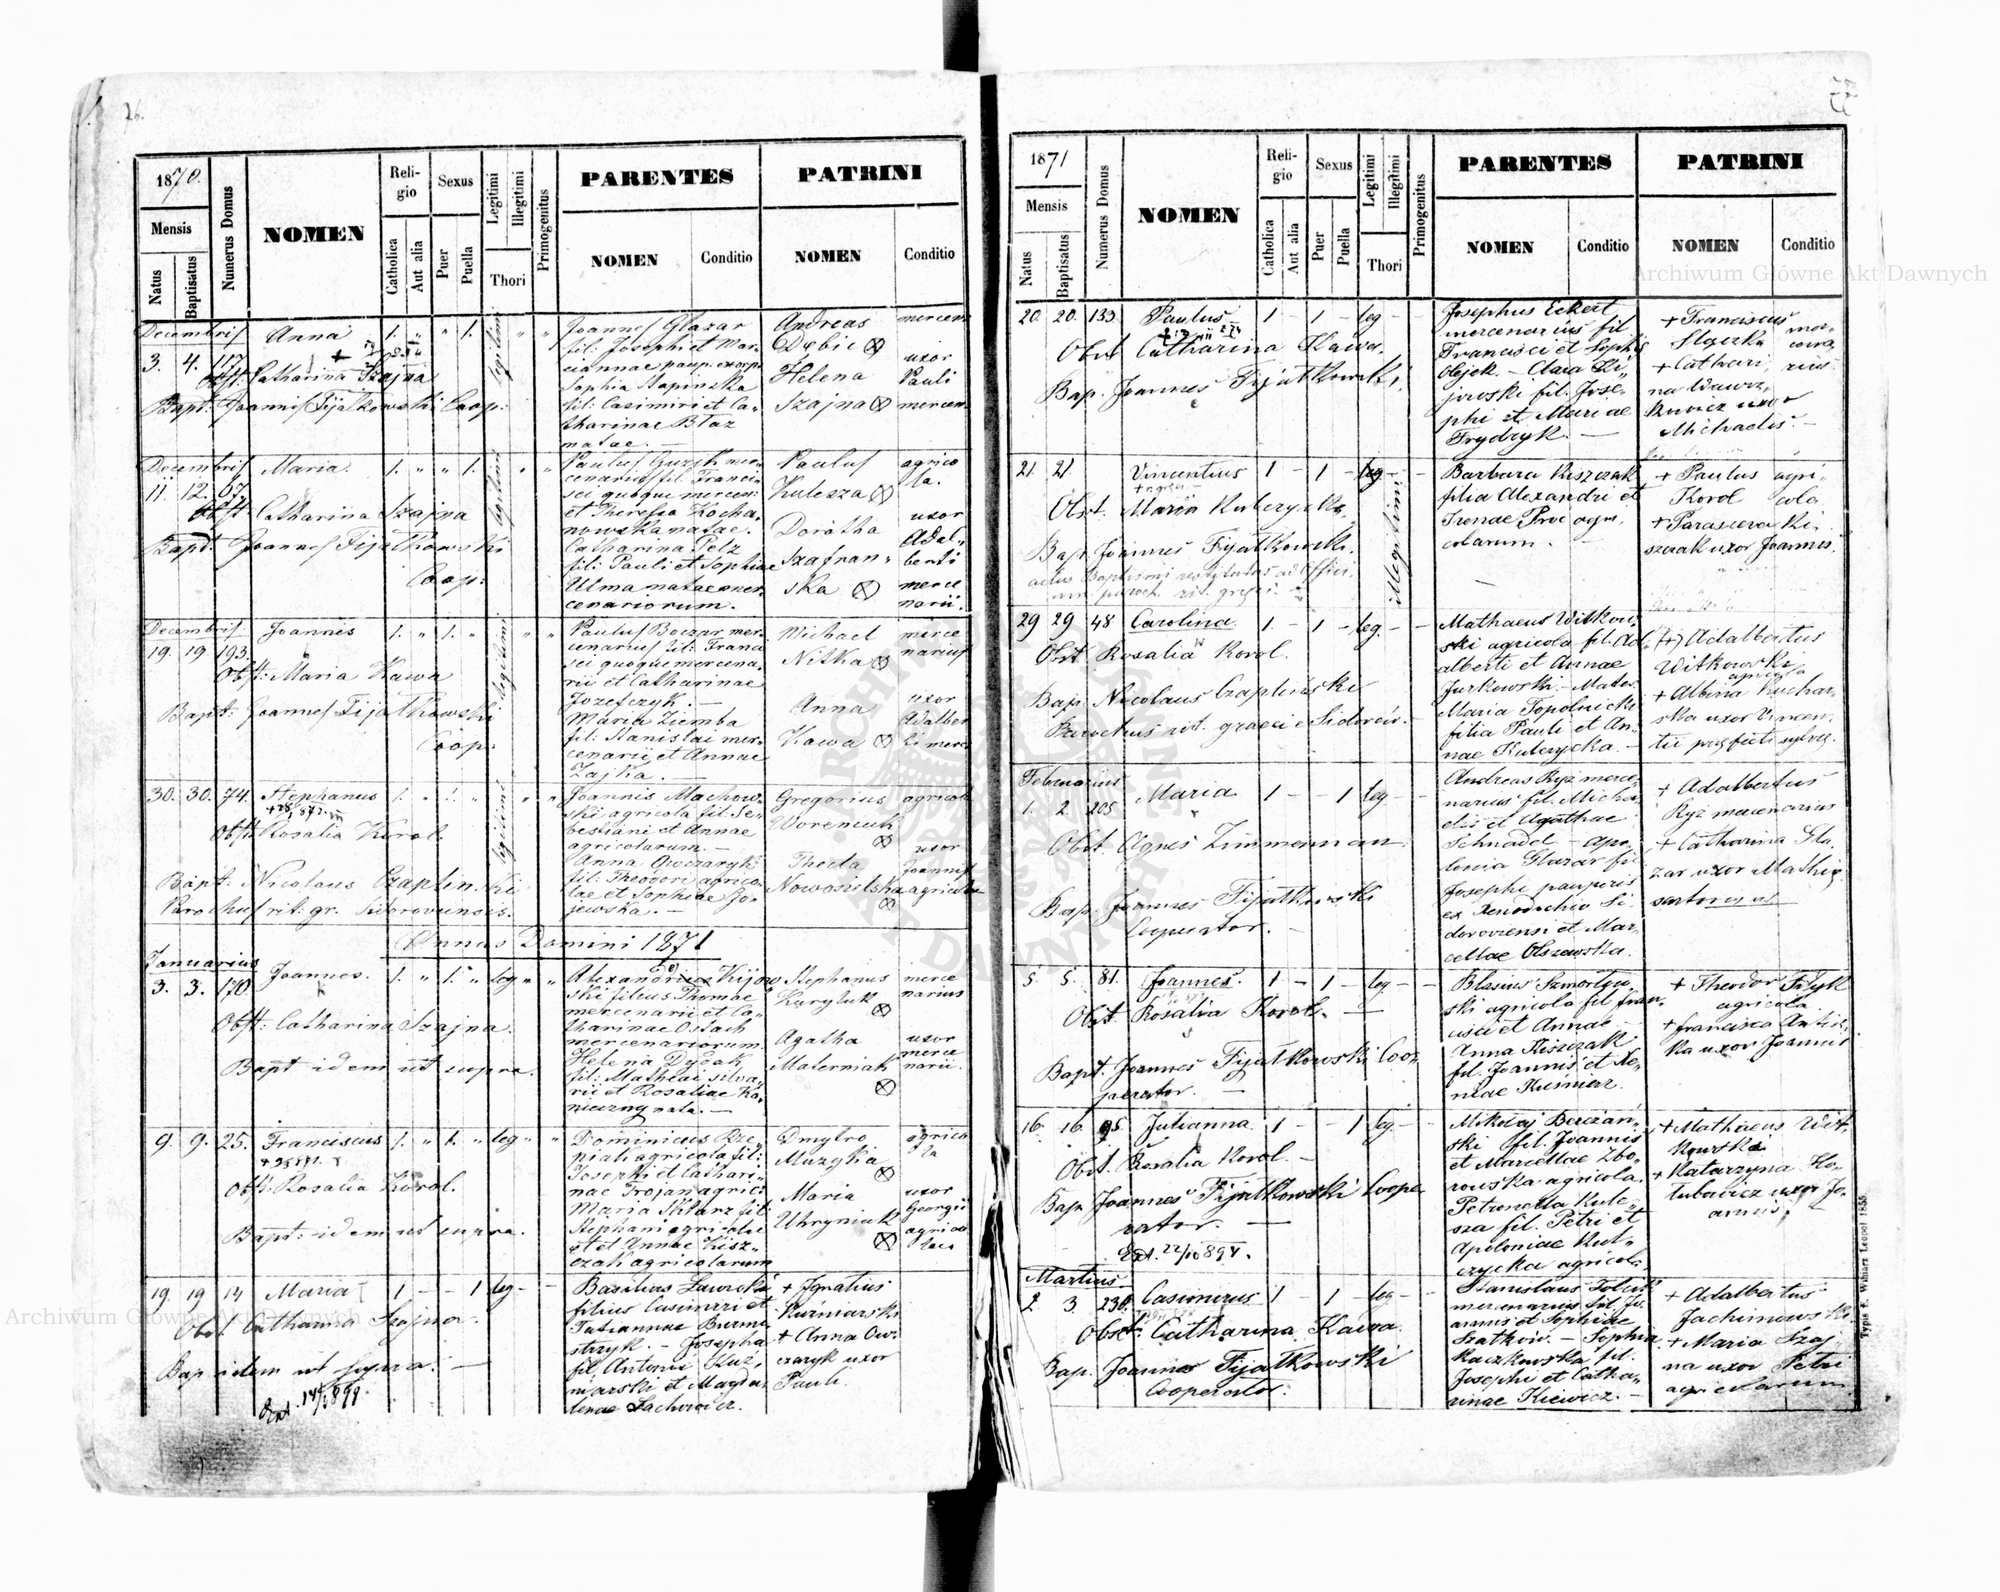 76.
1870.
Mensis
Natus
Baptisatus
Numerus Domus
NOMEN
Religio
Catholica
Aut alia
Sexus
Puer
Puella
Legitimi
Illegitimi
Thori
Primogenitus
PARENTES
NOMEN
Conditio
PATRINI
NOMEN
Conditio
Decembris
3. 4. 117.
Anna
1. " " 1.
legitimi
Obst: Catharina Szajna
Bapt: Joannes Fijałkowski Coop:
Joannes Glazar
fil: Josephi et Mar-
Sophia Stapinska
fil: Casimiri et Ca-
tharinae Błaz
natae. —
Andreas
Dębic
Helena
Szajna
mercen
uxor
Pauli
mercen
Decembris
11. 12. 67.
Maria
1. " " 1.
legitimi
Obst: Catharina Szajna
Bapt: Joannes Fijałkowski
Coop:
Paulus Guzyk mer-
cenarius fil: Franci-
sci quoque mercen:
et Theresia Kocha-
nowska natae.
Catharina Pelz
fil: Pauli et Sophiae
Ulma natae mer-
cenariorum.
Paulus
Kulesza
Dorotha
Szafran-
ska
agrico
la.
uxor
Adal-
berti
merce
narii.
Decembris
19. 19. 193.
Joannes
1. " 1. "
legitimi
Obst: Maria Kawa
Bapt: Joannes Fijałkowski
Coop:
Paulus Boczar mer-
cenarius fil: Franci
sci quoque mercena-
rii et Catharinae
Jozefczyk. —
Maria Ziemba
fil: Stanislai mer-
cenarii et Annae
Zajka. —
Michael
Nitka
Anna
Kawa
merce
narius
uxor
Adalber
ti merc
30. 30. 74.
Stephanus
1. " 1. "
legitimi
Obst: Rosalia Korol
Bapt: Nicolaus Czaplinski
Parochus rit: gr. Sidorovensis.
Joannis Machow-
ski agricola fil: Se-
bestiani et Annae
agricolarum. —
Anna Owczaryk
fil: Theodori agrico-
lae et Sophiae Go-
jewska. —
Gregorius
Woreniuk
Thecla
Nowosielska
agricola
uxor
Joannis
agricola
Annus Domini 1871
Januarius
3. 3. 170.
Joannes.
1. " 1. " leg " "
Obst: Catharina Szajna.
Bapt idem ut supra.
Alexandrier Kijow
ski filius Thomae
mercenarii et Ca-
tharinae Ostach
mercenariorum.
Helena Dydak
fil: Mathiai silva-
rii et Rosaliae Ko-
nieczny nata. —
Stephanus
Kuryluk
Agatha
Materniak
merce
narius
uxor
merce
narii.
9. 9. 25.
Franciscus
1. " 1. " leg " "
Obst: Rosalia Korol.
Bapt: idem ut supra.
Dominicus Rze-
piah agricola fil:
Josephi et Cathari-
nae Trojan agric:
Maria Sklarz fil:
Stephani agricolae
et et Annae Kisz-
czak agricolarum
Dmytro
Muzyka
Maria
Uhryniak
agrico
la
uxor
Georgii
agrico
lae
19 19 14
Maria
1 – – 1 leg – –
Obst Catharina Szajna.
Bap idem ut supra. —
Ext. 14/3 899.
Basilius Ławrecki
filius Casimiri et
Tatiannae Burmi-
strzyk. — Josepha
fil. Antonii Kuź-
miarski et Magda-
lenae Lachowicz.
+ Ignatius
Kuźmiarski
+ Anna Ow-
czaryk uxor
Pauli.
1871
Mensis
Natus
Baptisatus
Numerus Domus
NOMEN
Religio
Catholica
Aut alia
Sexus
Puer
Puella
Legitimi
Illegitimi
Thori
Primogenitus
PARENTES
NOMEN
Conditio
PATRINI
NOMEN
Conditio
20. 20. 133
Paulus
1 – 1 – leg – –
Obst Catharina Kawa.
Bap. Joannes Fijałkowski.
Josephus Eckert
mercenarius fil
Francisci et Sophiae
Olejek. – Clara Ki-
jowski fil. Jose-
phi et Mariae
Frydryk. —
+ Franciscus
Słyszka
+ Cathari-
na Wawrz-
kiewicz uxor
Michaelis. –
mer-
cena
rius
21. 21.
Vincentius
1 – 1 – leg – –
illegitimi
Obst. Maria Kulczycka.
Bap. Joannes Fijałkowski.
Barbara Kiszczak
filia Alexandri et
Irenae Proc agri-
colarum. –
+ Paulus
Korol
agri-
cola
+ Parasceva Ki-
szczak uxor Joannis.
29 29 48
Carolina
1 – 1 – leg – –
Obst Rosalia Korol.
Bap. Nicolaus Czapliński
Parochus rit. graeci e Sidorów. –
Mathaeus Witkow-
ski agricola fil. Ad-
alberti et Annae
Jurkowski. – Mater
Maria Topolnicki
filia Pauli et An-
nae Kulczycka. –
(+) Adalbertus
Witkowski
agricola
+ Albina Kuchar-
ska uxor Vincen-
tii praefecti sylvae.
Februarius
1. 2. 205
Maria
1 – – 1 leg – –
Obst. Agnes Zimmerman
Bap. Joannes Fijałkowski
Cooperator. –
Andreas Ryż merce-
narius fil. Micha-
elis et Agathae
Schnadel – Apo-
lonia Glazar fil
Josephi pauperis
ex Xenodochio Si-
doroviensi et Mar-
cellae Olszewska.
+ Adalbertus
Ryż mercenarius
+ Catharina Gla-
zar uxor Mathiae
sartoris
5. 5. 81.
Joannes.
1 – 1 – leg – –
Obst. Rosalia Korol. —
Bapt. Joannes Fijałkowski Coo-
perator. —
Blasius
ski agricola fil Fran-
cisci et Annae –
Anna Kiszczak
fil. Joannis et Xe-
niae Kuśnierz.
+ Theodor Filyk
agricola
+ Francisca Antos-
ka uxor Joannis
16. 16. 95.
Julianna
1 – – 1 leg – –
Obst. Rosalia Korol –
Bap. Joannes Fijałkowski Coope-
rator. —
Ext. 22/10 894.
Mikołaj Berezań-
ski fil. Joannis
et Marcellae Zbo-
rowska agricola.
Petronella Kule-
sza fil. Petri et
Apoloniae Kul-
czycka agricol.
+ Mathaeus Wit-
kowski
+ Katarzyna Ho-
łubowicz uxor Jo-
annis.
Martius
2 3. 230.
Casimirus
1 – 1 – leg – –
Obst. Catharina Kawa.
Bap. Joannes Fijałkowski
Cooperator.
Stanislaus
mercenarius fil. Jo-
annis et Sophiae
Szatków. – Sophia
Kaczkowska fil.
Josephi et Catha-
rinae Kiewicz. –
+ Adalbertus
Jachimowski.
+ Maria Szaj
na uxor Petri
agricolarum.
Typis E. Winiarz Leopol 1855.
Archiwum Główne Akt Dawnych
Archiwum Główne Akt Dawnych